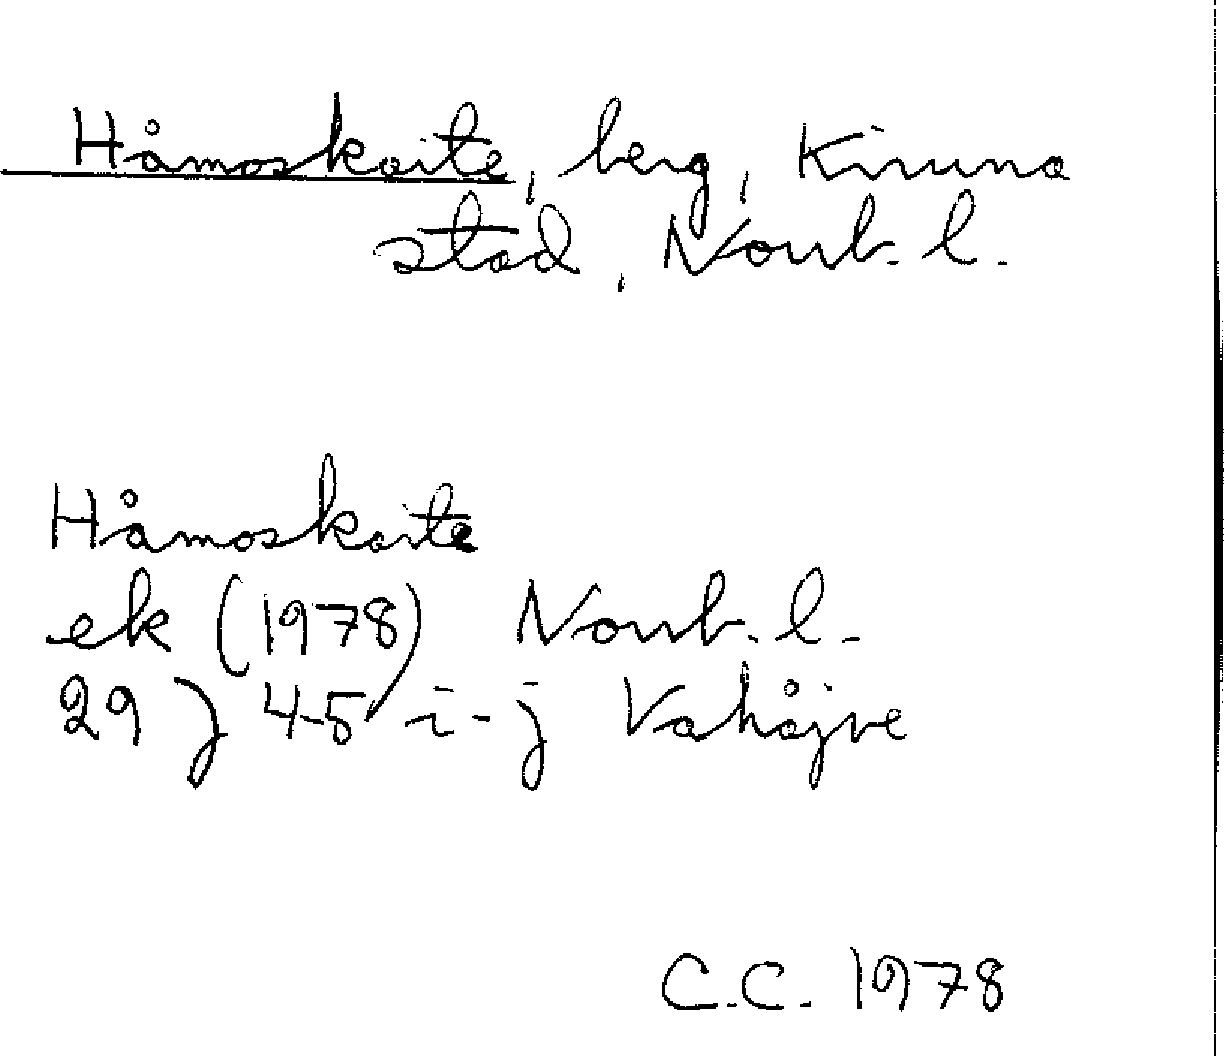 Håmoskaite, berg, Kiruna
stad, Norrb. l.
Håmoskaite
ek (1978) Norrb. l.
29 J 4-5 i-j Vahåjve
C.C. 1978